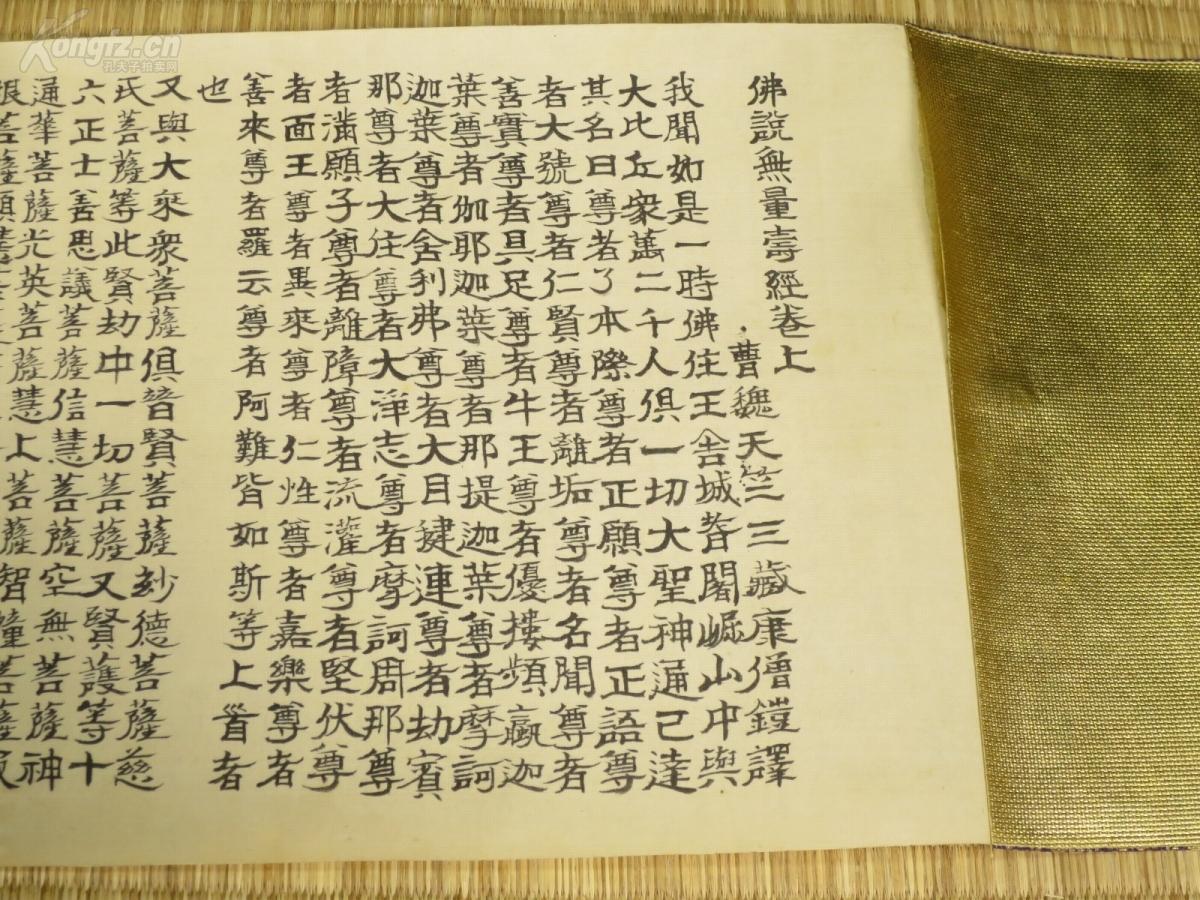 佛說無量壽經卷上
曹魏天竺三藏康僧鎧譯
我聞如是一時佛住王舍城耆闍崛山中與
大比丘衆萬二千人俱一切大聖神通已達
其名曰尊者了本際尊者正願尊者正語尊
者大號尊者仁賢尊者離垢尊者名聞尊者
善實尊者具足尊者牛王尊者優樓頻蠃迦
葉尊者伽耶迦葉尊者那提迦葉尊者摩訶
迦葉尊者舍利弗尊者大目揵連尊者劫賓
那尊者大住尊者大淨志尊者摩訶周那尊
者滿願子尊者離障尊者流灌尊者堅伏尊
者面王尊者異乘尊者仁性尊者嘉樂尊者
善來尊者羅云尊者阿難皆如斯等上首者
也
又與大乘衆菩薩俱普賢菩薩妙德菩薩慈
氏菩薩等此賢劫中一切菩薩又賢護等十
六正士善思議菩薩信慧菩薩空無菩薩神
通華菩薩光英菩薩慧上菩薩智幢菩薩寂
根菩薩願慧
Kongfz.cn
孔夫子拍卖网